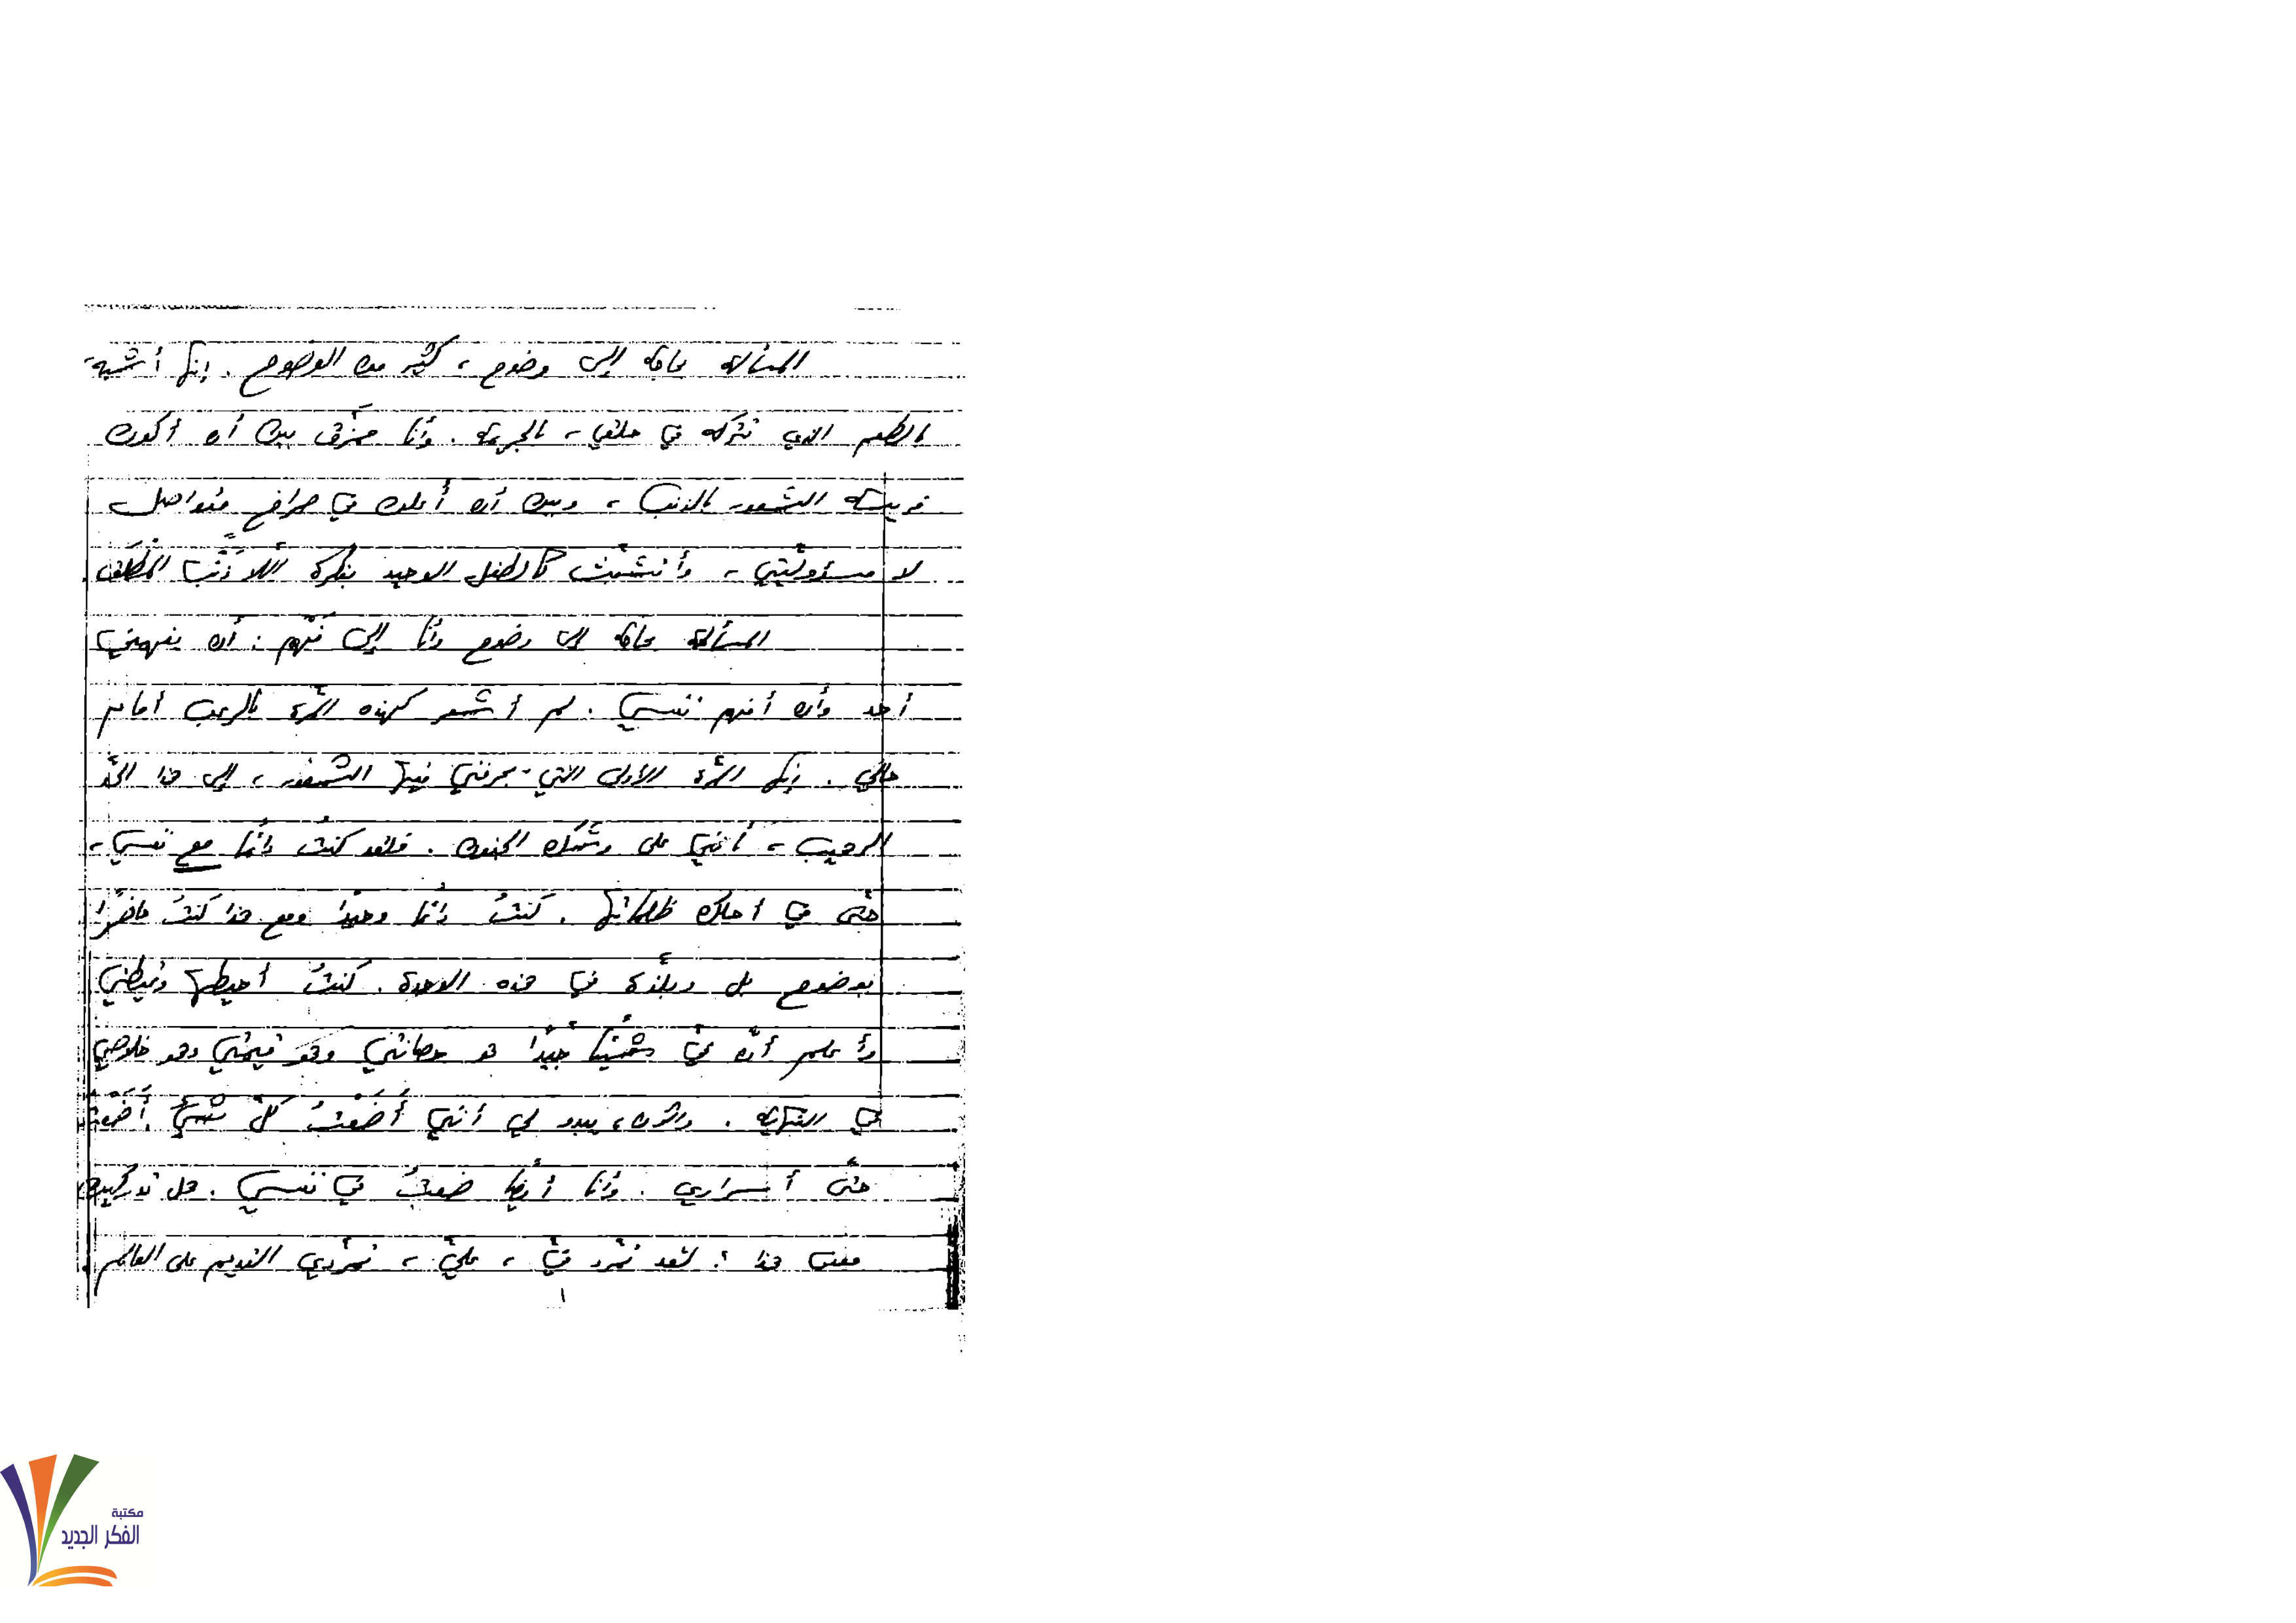 المسألة بحاجة إلى وضوح، كثير من الوضوح. إنها أشبه،
بالطعم الذي تتركه في حلقي، بالجريمة. وأنا ممزّق بين أن أكون
فريسة الشعور بالذنب، وبين أن أعلن في صراخٍ متواصل،
لا مسؤوليّتي، وأتشبّث كالطفل الوحيد بفكرة اللاذَنْب المطلق.
المسألة بحاجة إلى وضوح وأنا إلى تفهّم: أن يفهمني
أحد وأن أفهم نفسي. لم أشعر كهذه المرّة بالرعب أمام
حالي. إنها المرّة الأولى التي يجرفني فيها الشعور، إلى هذا الحدّ
الرهيب، أنني على وشك الجنون. فلقد كنتُ دائمًا مع نفسي،
حتّى في أحلك ظلماتها. كنتُ دائمًا وحيدًا ومع هذا كنتُ حاضرًا
بوضوح بل وبلذّة في هذه الوحدة. كنتُ أحيطها وتحيطني
وأعلم أنّ فيّ شيئًا جيّدًا هو حصانتي وهو قيمتي وهو خلاصي
في النهاية. والآن، يبدو لي أنني أَضَعْتُ كلّ شيءٍ. أضعتُ
حتّى أسراري. وأنا أيضًا ضعتُ في نفسي. هل تدركين
معنى هذا؟ لقد تمرّد فيّ، عليّ، تمرّدي القديم على العالم.
١
مكتبة
الفكر الجديد